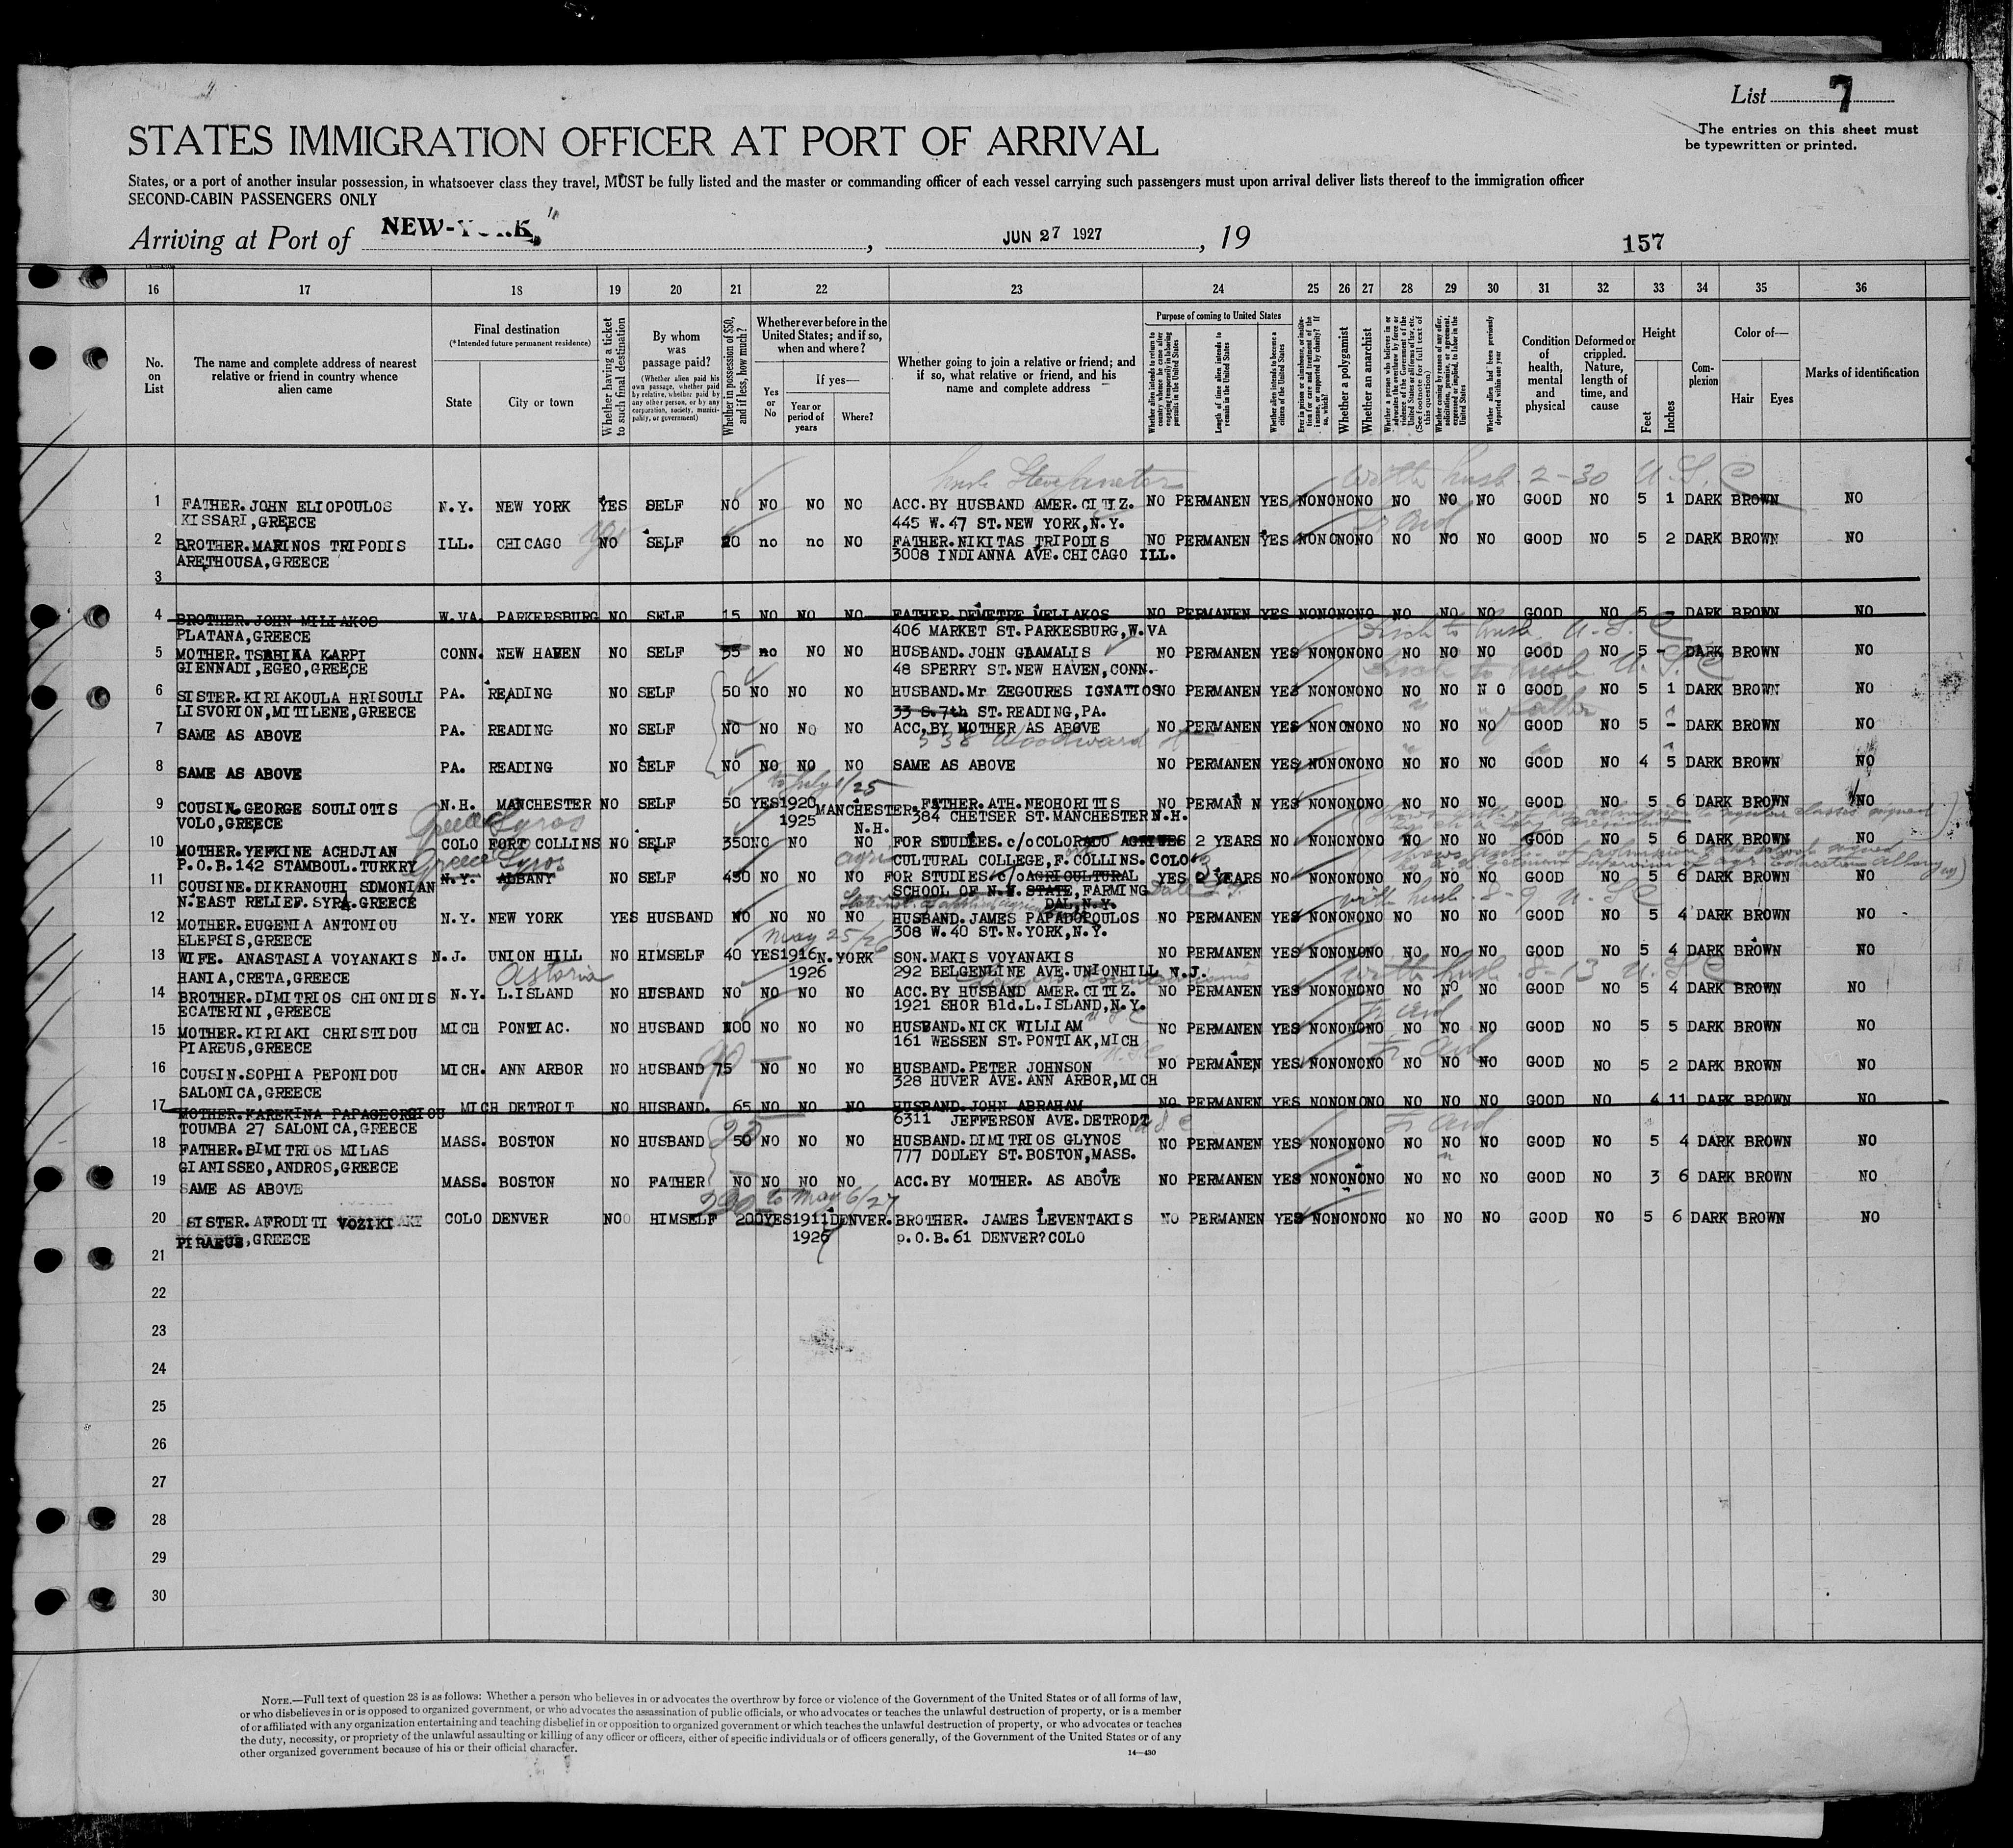 List 7
The entries on this sheet must
be typewritten or printed.
STATES IMMIGRATION OFFICER AT PORT OF ARRIVAL
States, or a port of another insular possession, in whatsoever class they travel, MUST be fully listed and the master or commanding officer of each vessel carrying such passengers must upon arrival deliver lists thereof to the immigration officer
SECOND-CABIN PASSENGERS ONLY
Arriving at Port of NEW-YORK, JUN 27 1927, 19
157
16 17 18 19 20 21 22 23 24 25 26 27 28 29 30 31 32 33 34 35 36
No. on List
The name and complete address of nearest relative or friend in country whence alien came
Final destination
(*Intended future permanent residence)
State
City or town
Whether having a ticket to such final destination
By whom was passage paid?
(Whether alien paid his own passage, whether paid by relative, whether paid by any other person, or by any corporation, society, municipality, or government)
Whether in possession of $50, and if less, how much?
Whether ever before in the United States; and if so, when and where?
Yes or No
If yes—
Year or period of years
Where?
Whether going to join a relative or friend; and if so, what relative or friend, and his name and complete address
Purpose of coming to United States
Whether alien intends to return to country whence he came after engaging temporarily in laboring pursuits in the United States
Length of time alien intends to remain in the United States
Whether alien intends to become a citizen of the United States
Whether a polygamist
Whether an anarchist
Condition of health, mental and physical
Deformed or crippled. Nature, length of time, and cause
Height
Feet
Inches
Complexion
Color of—
Hair
Eyes
Marks of identification
with husb. 2-30 U.S.C
1 FATHER.JOHN ELIOPOULOS N.Y. NEW YORK YES SELF NO NO NO NO ACC.BY HUSBAND AMER.CITIZ. NO PERMANEN YES NO NO NO NO NO NO GOOD NO 5 1 DARK BROWN NO
KISSARI,GREECE 445 W.47 ST.NEW YORK,N.Y.
2 BROTHER.MARINOS TRIPODIS ILL. CHICAGO NO SELF 20 no no NO FATHER.NIKITAS TRIPODIS NO PERMANEN YES NO NO NO NO NO NO NO GOOD NO 5 2 DARK BROWN NO
ARETHOUSA,GREECE 3008 INDIANNA AVE.CHICAGO ILL.
3
4 BROTHER.JOHN MILIAKOS W.VA. PARKERSBURG NO SELF 15 NO NO NO FATHER.DEMETRE MELIAKOS NO PERMANEN YES NO NO NO NO NO NO NO GOOD NO 5 - DARK BROWN NO
PLATANA,GREECE 406 MARKET ST.PARKESBURG,W.VA
5 MOTHER.TSABIKA KARPI CONN. NEW HAVEN NO SELF 35 no NO NO HUSBAND.JOHN GIAMALIS NO PERMANEN YES NO NO NO NO NO NO NO GOOD NO 5 - DARK BROWN NO
GIENNADI,EGEO,GREECE 48 SPERRY ST.NEW HAVEN,CONN.
6 SISTER.KIRIAKOULA HRISOULI PA. READING NO SELF 50 NO NO NO HUSBAND.Mr ZEGOURES IGNATIOS NO PERMANEN YES NO NO NO NO NO NO N O GOOD NO 5 1 DARK BROWN NO
LISVORION,MITILENE,GREECE 33 S.7th ST.READING,PA.
7 SAME AS ABOVE PA. READING NO SELF NO NO NO NO ACC.BY MOTHER AS ABOVE NO PERMANEN YES NO NO NO NO NO NO NO GOOD NO 5 - DARK BROWN NO
538 Woodward St
8 SAME AS ABOVE PA. READING NO SELF NO NO NO NO SAME AS ABOVE NO PERMANEN YES NO NO NO NO NO NO NO GOOD NO 4 5 DARK BROWN NO
9 COUSIN.GEORGE SOULIOTIS N.H. MANCHESTER NO SELF 50 YES 1920 MANCHESTER. FATHER.ATH.NEOHORITIS NO PERMAN N YES NO NO NO NO NO NO NO GOOD NO 5 6 DARK BROWN NO
VOLO,GREECE 1925 N.H. 384 CHETSER ST.MANCHESTER N.H.
Greece Syros
10 MOTHER.YEFKINE ACHDJIAN COLO FORT COLLINS NO SELF 350 NO NO NO FOR STUDIES.c/o COLORADO 2 YEARS NO NO NO NO NO NO NO NO GOOD NO 5 6 DARK BROWN NO
P.O.B.142 STAMBOUL.TURKRY CULTURAL COLLEGE,F.COLLINS.COLO
Greece Syros
11 COUSINE.DIKRANOUHI SIMONIAN N.Y. ALBANY NO SELF 450 NO NO NO FOR STUDIES c/o AGRICULTURAL YES 2 YEARS NO NO NO NO NO NO NO NO GOOD NO 5 6 DARK BROWN NO
N.EAST RELIEF.SYRA.GREECE SCHOOL OF N.Y. STATE,FARMING
DAL,N.Y.
with husb. 8-9 U.S.C
12 MOTHER.EUGENIA ANTONIOU N.Y. NEW YORK YES HUSBAND NO NO NO NO HUSBAND.JAMES PAPADOPOULOS NO PERMANEN YES NO NO NO NO NO NO NO GOOD NO 5 4 DARK BROWN NO
ELEFSIS,GREECE 308 W.40 ST.N.YORK,N.Y.
May 25/26
13 WIFE. ANASTASIA VOYANAKIS N.J. UNION HILL NO HIMSELF 40 YES 1916 N.YORK SON.MAKIS VOYANAKIS NO PERMANEN YES NO NO NO NO NO NO NO GOOD NO 5 4 DARK BROWN NO
HANIA,CRETA,GREECE 1926 292 BELGENLINE AVE.UNIONHILL N.J.
Astoria with husb. 8-13 U.S.C
14 BROTHER.DIMITRIOS CHIONIDIS N.Y. L.ISLAND NO HUSBAND NO NO NO NO ACC.BY HUSBAND AMER.CITIZ. NO PERMANEN YES NO NO NO NO NO NO NO GOOD NO 5 4 DARK BROWN NO
ECATERINI,GREECE 1921 SHOR Bld.L.ISLAND,N.Y.
15 MOTHER.KIRIAKI CHRISTIDOU MICH PONTIAC. NO HUSBAND 100 NO NO NO HUSBAND.NICK WILLIAM NO PERMANEN YES NO NO NO NO NO NO NO GOOD NO 5 5 DARK BROWN NO
PIAREUS,GREECE 161 WESSEN ST.PONTIAK,MICH
16 COUSIN.SOPHIA PEPONIDOU MICH. ANN ARBOR NO HUSBAND 75 NO NO NO HUSBAND.PETER JOHNSON NO PERMANEN YES NO NO NO NO NO NO NO GOOD NO 5 2 DARK BROWN NO
SALONICA,GREECE 328 HUVER AVE.ANN ARBOR,MICH
17 MOTHER.KAREKINA PAPAGEORGIOU MICH DETROIT NO HUSBAND. 65 NO NO NO HUSBAND.JOHN ABRAHAM NO PERMANEN YES NO NO NO NO NO NO NO GOOD NO 4 11 DARK BROWN NO
TOUMBA 27 SALONICA,GREECE 6311 JEFFERSON AVE.DETROIT
18 FATHER.DIMITRIOS MILAS MASS. BOSTON NO HUSBAND 50 NO NO NO HUSBAND.DIMITRIOS GLYNOS NO PERMANEN YES NO NO NO NO NO NO NO GOOD NO 5 4 DARK BROWN NO
GIANISSEO,ANDROS,GREECE 777 DODLEY ST.BOSTON,MASS.
19 SAME AS ABOVE MASS. BOSTON NO FATHER NO NO NO NO ACC.BY MOTHER. AS ABOVE NO PERMANEN YES NO NO NO NO NO NO NO GOOD NO 3 6 DARK BROWN NO
to May 6/27
20 SISTER.AFRODITI VOZIKI COLO DENVER NO HIMSELF 200 YES 1911 DENVER. BROTHER. JAMES LEVENTAKIS NO PERMANEN YES NO NO NO NO NO NO NO GOOD NO 5 6 DARK BROWN NO
PIRAEUS,GREECE 1926 p.O.B.61 DENVER?COLO
21
22
23
24
25
26
27
28
29
30
NOTE.—Full text of question 28 is as follows: Whether a person who believes in or advocates the overthrow by force or violence of the Government of the United States or of all forms of law,
or who disbelieves in or is opposed to organized government, or who advocates the assassination of public officials, or who advocates or teaches the unlawful destruction of property, or is a member
of or affiliated with any organization entertaining and teaching disbelief in or opposition to organized government or which teaches the unlawful destruction of property, or who advocates or teaches
the duty, necessity, or propriety of the unlawful assaulting or killing of any officer or officers, either of specific individuals or of officers generally, of the Government of the United States or of any
other organized government because of his or their official character.
14—430